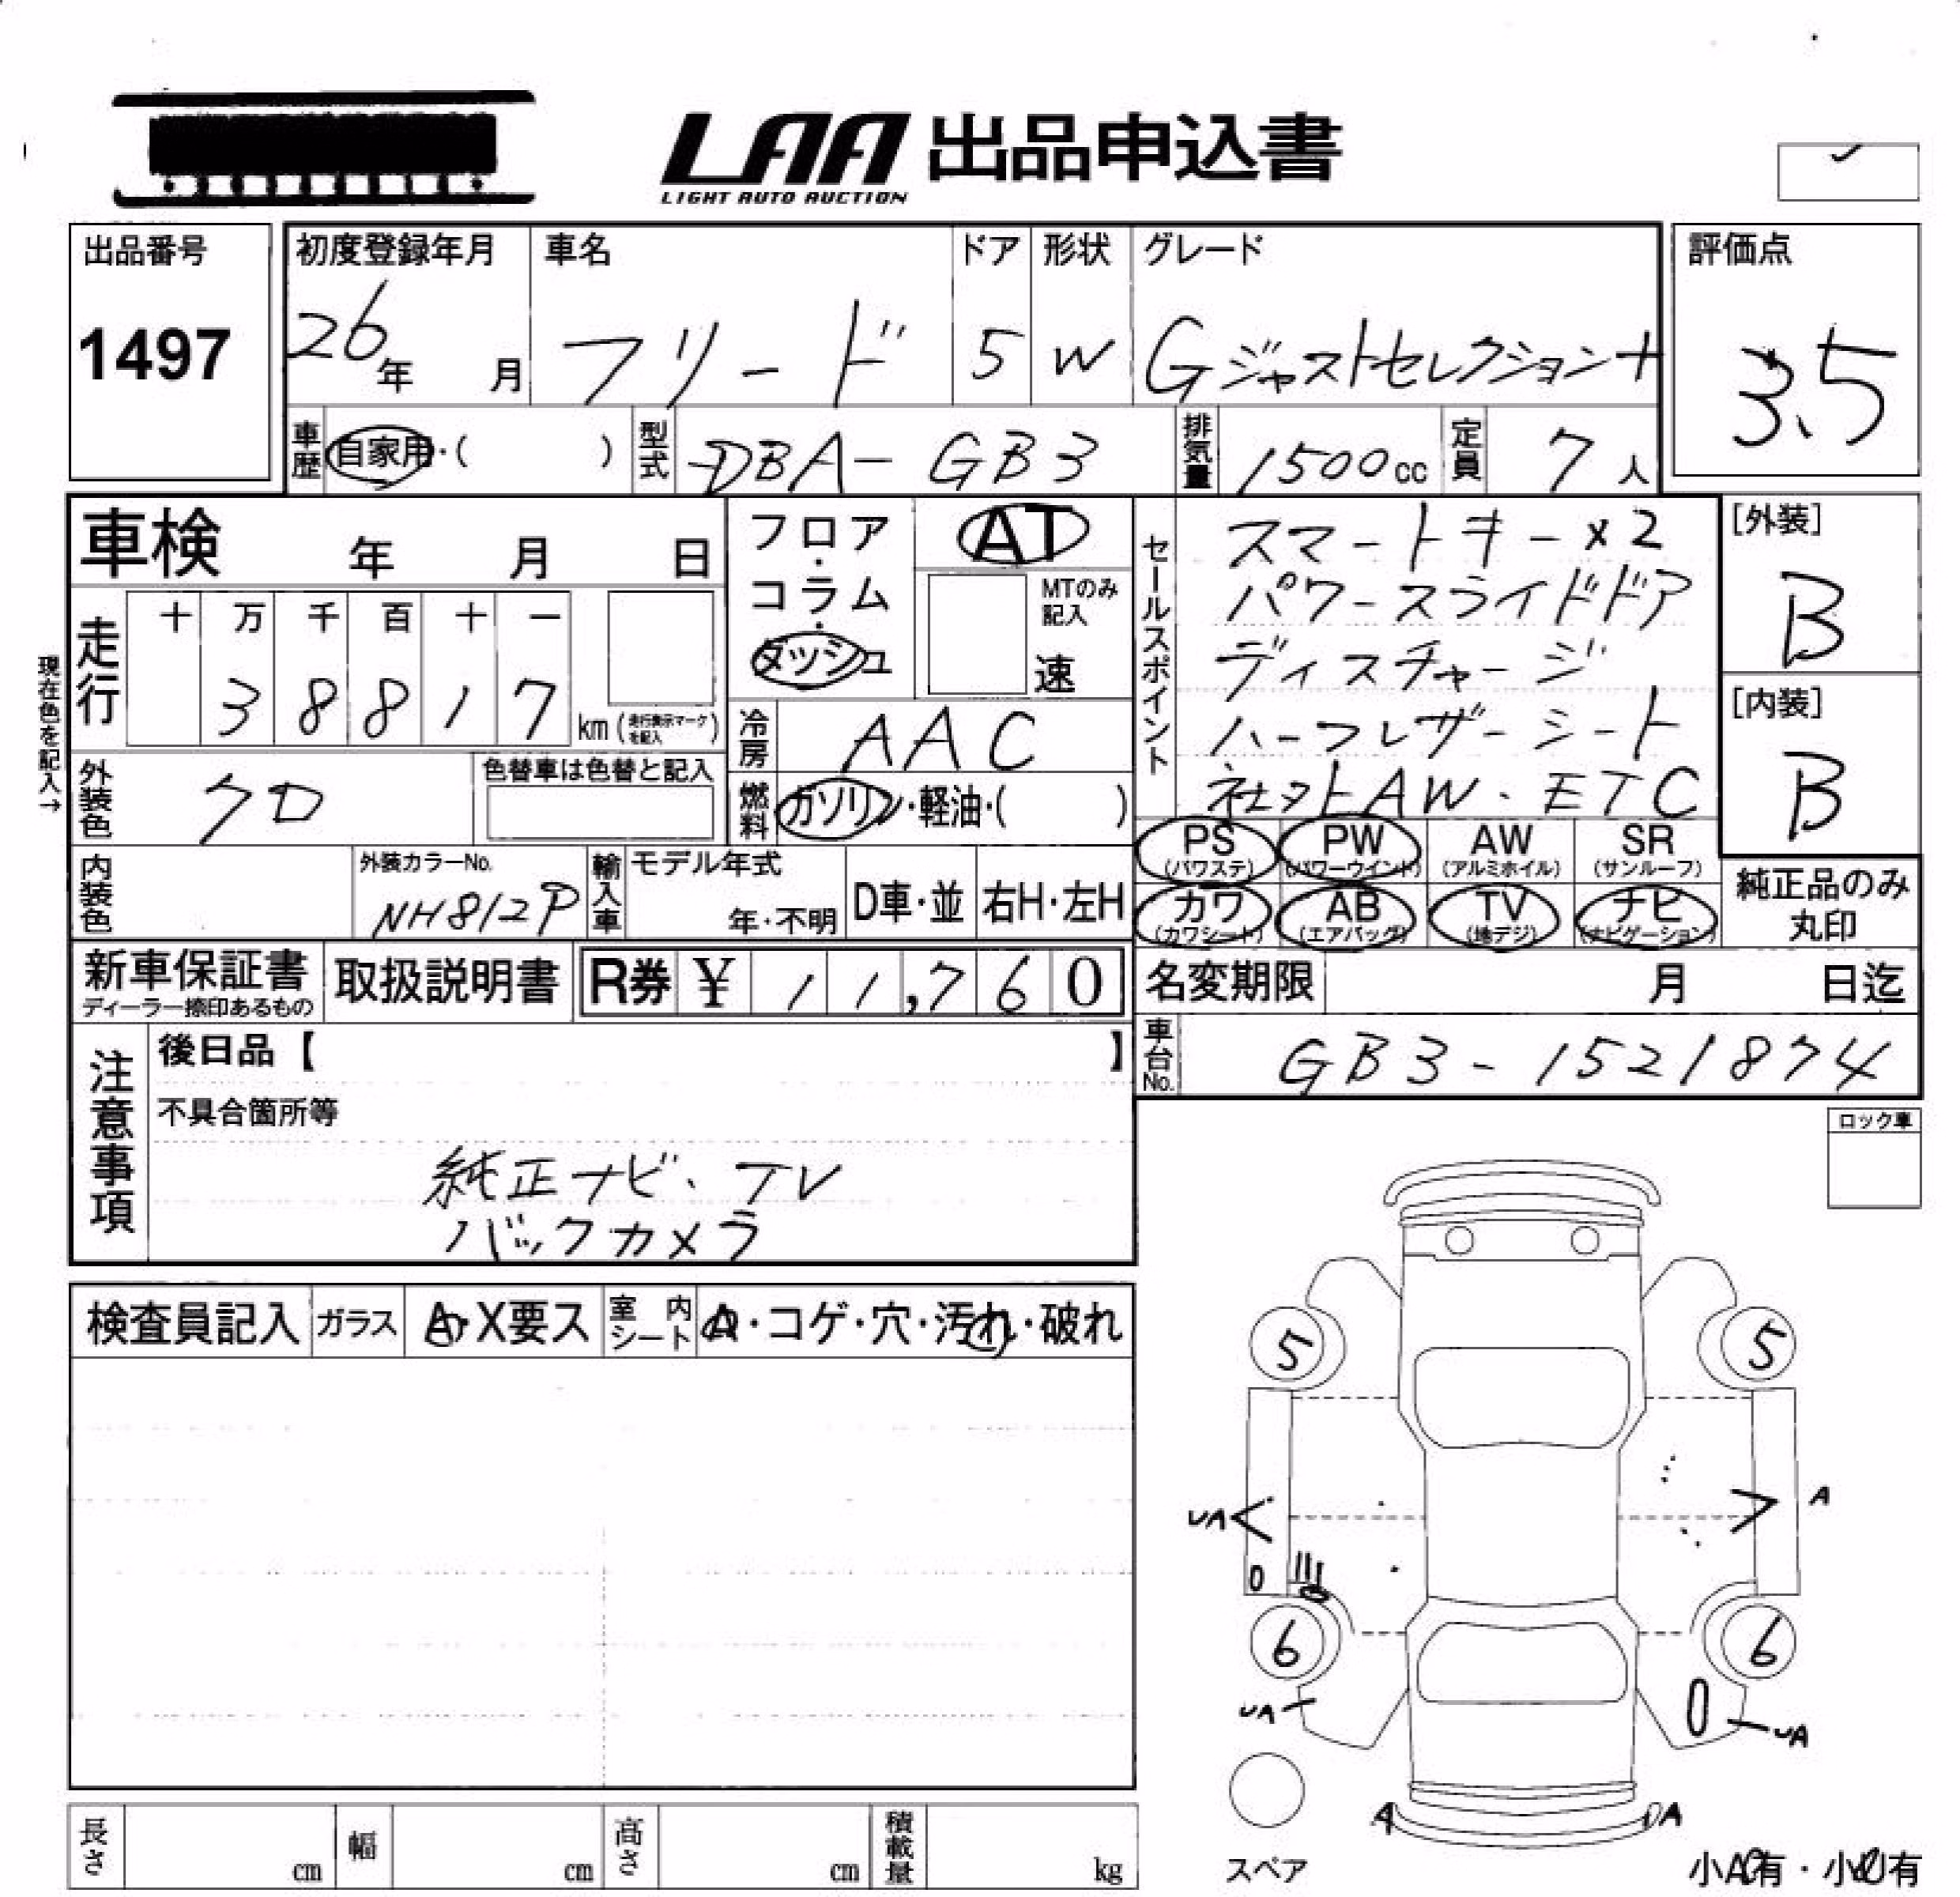 LAA 出品申込書
LIGHT AUTO AUCTION
出品番号
1497
初度登録年月
26年 月
車名
フリード
ドア
5
形状
W
グレード
Gジャストセレクション+
評価点
3.5
車歴 自家用・( )
型式 DBA-GB3
排気量 1500cc
定員 7人
車検 年 月 日
フロア・コラム・ダッシュ
AT
MTのみ記入
速
現在色を記入→
走行
十 万 千 百 十 一
3 8 8 1 7
km(走行表示マークを記入)
冷房 AAC
外装色 クロ
色替車は色替と記入
燃料 ガソリン・軽油・( )
セールスポイント
スマートキー×2
パワースライドドア
ディスチャージ
ハーフレザーシート
社外AW・ETC
[外装]
B
[内装]
B
PS (パワステ)
PW (パワーウインド)
AW (アルミホイル)
SR (サンルーフ)
カワ (カワシート)
AB (エアバッグ)
TV (地デジ)
ナビ (ナビゲーション)
純正品のみ丸印
内装色
外装カラーNo.
NH812P
輸入車
モデル年式
年・不明
D車・並
右H・左H
新車保証書
ディーラー捺印あるもの
取扱説明書
R券 ¥ 11,760
名変期限 月 日迄
車台No. GB3-1521874
注意事項
後日品【 】
不具合箇所等
純正ナビ、TV
バックカメラ
ロック車
検査員記入
ガラス A・X要ス
室内シート A・コゲ・穴・汚れ・破れ
5 5
UA A
6 6
UA UA
A A
スペア
小A有・小U有
長さ cm
幅 cm
高さ cm
積載量 kg